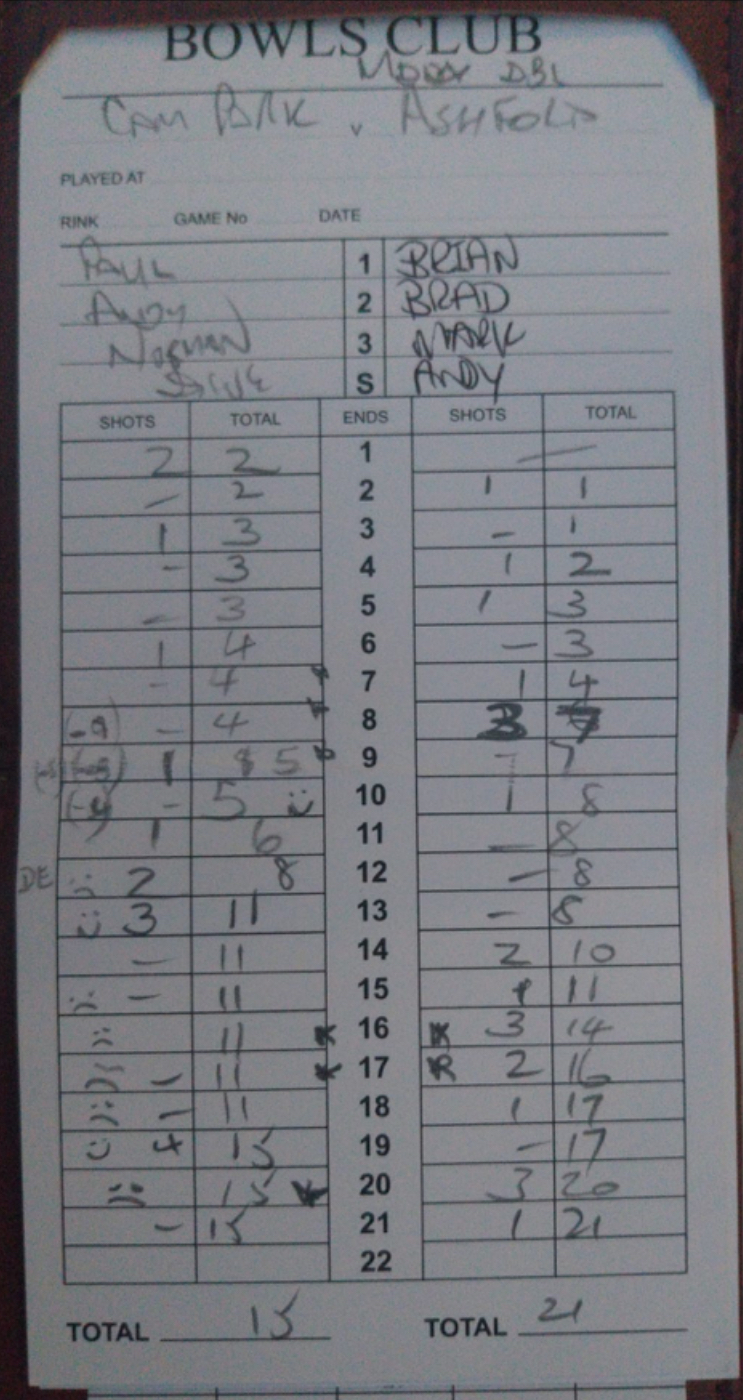 BOWLS CLUB
DBL
CAM PARK v ASHFORD
PLAYED AT
RINK GAME No DATE
PAUL 1 BRIAN
ANDY 2 BRAD
NORMAN 3 MARK
STEVE S ANDY
SHOTS TOTAL ENDS SHOTS TOTAL
2 2 1 —
- 2 2 1 1
1 3 3 - 1
- 3 4 1 2
- 3 5 1 3
1 4 6 - 3
- 4 7 1 4
- 4 8 3 7
1 5 9 - 7
- 5 :) 10 1 8
1 6 11 - 8
DE :( 2 8 12 - 8
:) 3 11 13 - 8
- 11 14 2 10
:( - 11 15 1 11
:( 11 * 16 * 3 14
:( - 11 * 17 * 2 16
:( - 11 18 1 17
:) 4 15 19 - 17
:( 15 * 20 3 20
- 15 21 1 21
22
TOTAL 15 TOTAL 21